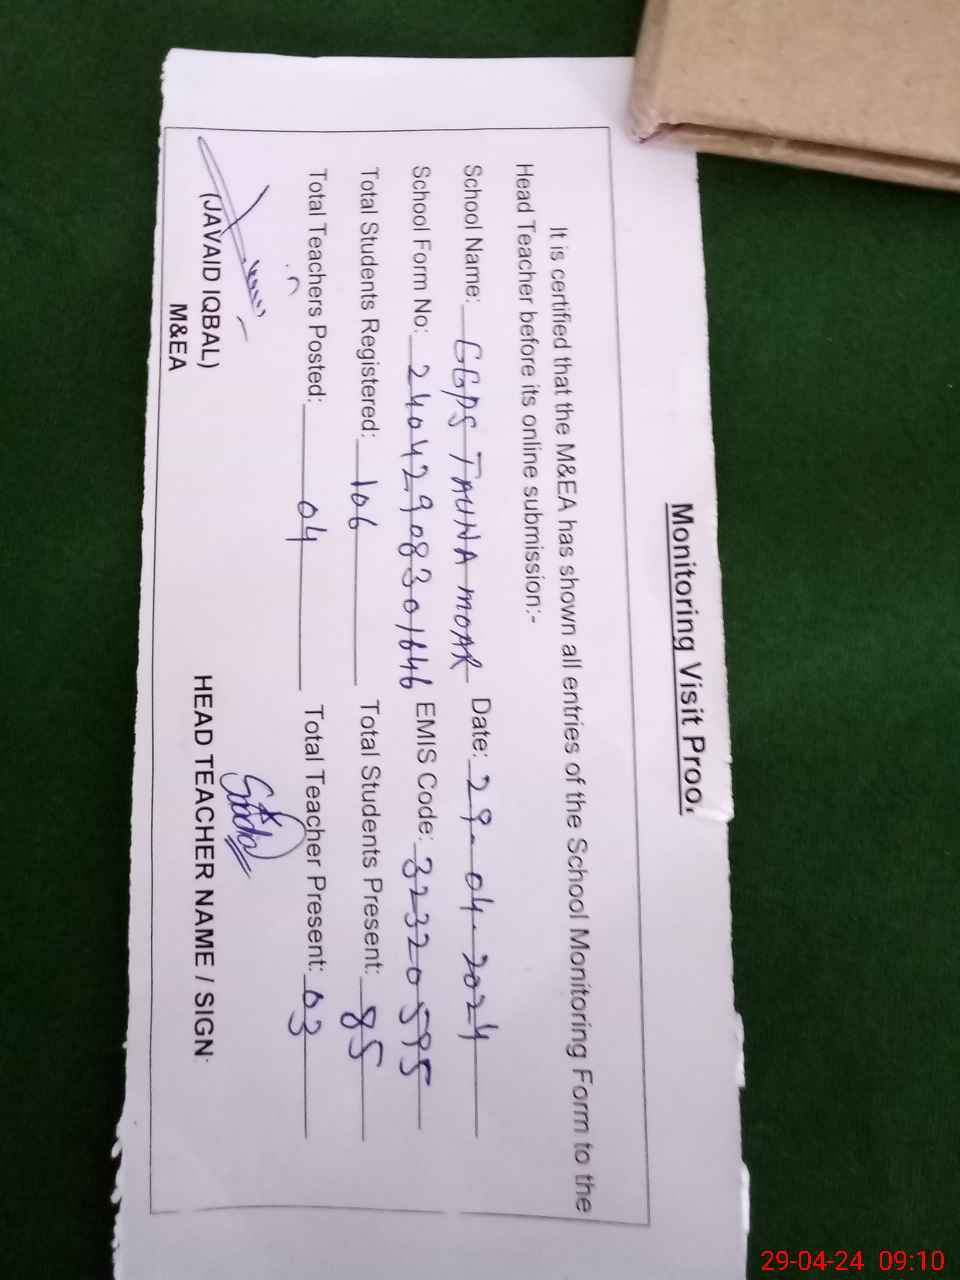 Monitoring Visit Proo.
It is certified that the M&EA has shown all entries of the School Monitoring Form to the
Head Teacher before its online submission:-
School Name: GGPS TAUNA MOAR Date: 29-04-2024
School Form No: 24042908301646 EMIS Code: 32320595
Total Students Registered: 106 Total Students Present: 85
Total Teachers Posted: 04 Total Teacher Present: 03
(JAVAID IQBAL) HEAD TEACHER NAME / SIGN:
M&EA
29-04-24 09:10